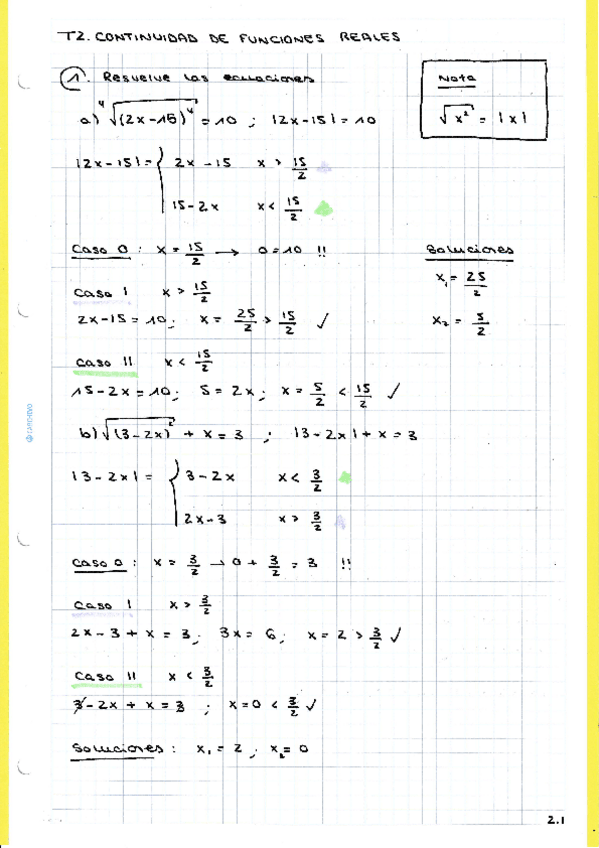 T2. CONTINUIDAD DE FUNCIONES REALES
1. Resuelve las ecuaciones
Nota
√x² = |x|
a) ⁴√(2x-15)⁴ = 10 ; |2x-15| = 10
|2x-15| = { 2x-15 x > 15/2
15-2x x < 15/2
Caso 0 : x = 15/2 → 0=10 !!
Soluciones
x₁ = 25/2
x₂ = 5/2
Caso I x > 15/2
2x-15 = 10; x = 25/2 > 15/2 ✓
Caso II x < 15/2
15-2x = 10; 5 = 2x; x = 5/2 < 15/2 ✓
b) √(3-2x)² + x = 3 ; |3-2x| + x = 3
|3-2x| = { 3-2x x < 3/2
2x-3 x > 3/2
Caso 0 : x = 3/2 → 0 + 3/2 = 3 !!
Caso I x > 3/2
2x-3 + x = 3; 3x = 6; x = 2 > 3/2 ✓
Caso II x < 3/2
3-2x + x = 3 ; x=0 < 3/2 ✓
Soluciones : x₁ = 2 ; x₂ = 0
2.1